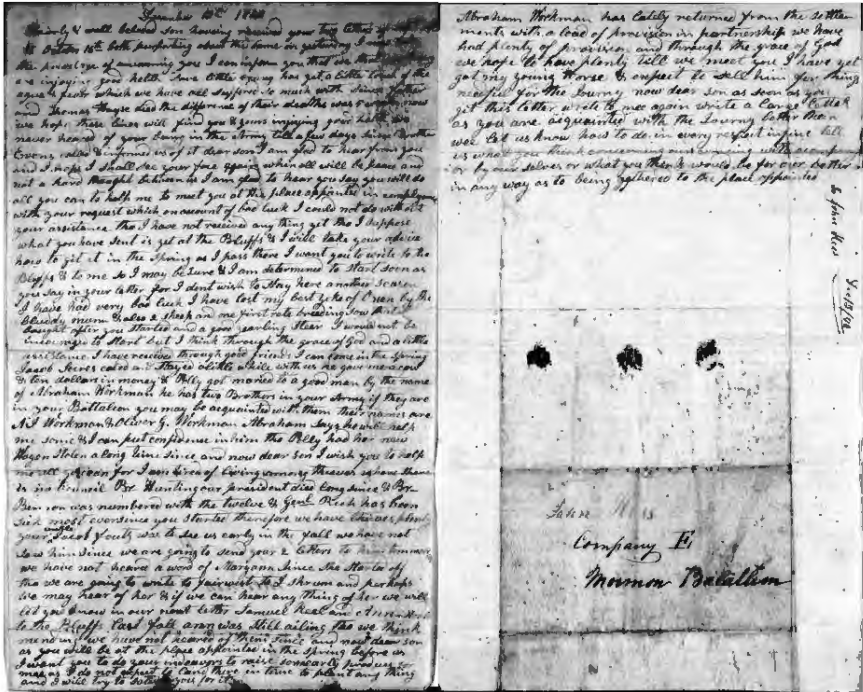 December 15th 1846
beloved son having received your two letters of
& October 18th both purporting about the same on yesturday I now
the privilege of answering you I can inform you that we
are enjoying good helth has got a little touch of the
ague & fever which we have all suffered so much with Since father
and Thomas died the difference of their deaths was now
we hope these lines will find you & yours injoying good helth we
never heared of your being in the Army till a few days Since Brother
Evens called & informed us of it dear son I am glad to hear from you
and I hope I shall see your face again when all will be peace and
not a hard thought between us I am glad to hear you say you will do
all you can to help me to meet you at the place appointed in
with your request which on account of bad luck I could not do without
your assistance tho I have not received any thing yet tho I Suppose
what you have sent is yet at the Bluffs & I will take your advise
how to git it in the Spring as I pass there I want you to write to the
Bluffs & to me so I may be Sure & I am determined to Start soon as
you say in your letter for I dont wish to Stay here another season
I have had very bad luck I have lost my best yoke of Oxen by the
Bluddy murrin & also 2 sheep and one first rate breeding sow that I
bought after you started and a good yearling Steer I would not be
incouraged to Start but I think through the grace of God and a little
assistance I have received through good friends I can come in the Spring
Jacob called and Stayed a little while with us he gave me a cow
& ten dollars in money & Polly got maried to a good man by the name
of Abraham Workman he has two Brothers in your Army if they are
in your Battalion you may be acquainted with them their names are
Workman & Oliver G. Workman Abraham Says he will help
me some & I can put confidence in him tho Polly had her new
Wagon Stolen a long time since and now dear son I wish you to help
me all you can for I am tired of living among theaves
is in Council Br. Hunting our president died long since & Br
Benson was numbered with the twelve & Genl Rich has been
Sick most ever since you Started therefore we have theives plenty
your uncle Jacob was to see us early in the fall we have not
Saw him since we are going to send your 2 letters to him
we have not heared a word of Maryann Since She Started off
tho we are going to write to and perhaps
we may hear of her & if we can hear any thing of her we will
let you know in our next letter Samuel and
to the Bluffs last fall was Still ailing tho we think
mending we have not heared of them Since and now dear son
as you will be at the place appointed in the Spring before us
I want you to do your indeavors to raise some early produce
me as I do not expect to land there in time to plant any thing
and I will try to you for it
Abraham Workman has lately returned from the Settle
ments with a load of provision in partnership we have
had plenty of provision and through the grace of God
we hope to have plenty till we meet you I have yet
got my young Horse & expect to sell him for things
needful for the Journy now dear son as soon as you
get this letter write to me again write a large letter
as you are acquainted with the Journy better than
wee let us know how to do in every respect in fine tell
us what you think concerning our coming with a comp
or by our selves or what you think would be for our better
in any way as to being gethered to the place appointed
to John Hess
Company E
Mormon Batallion